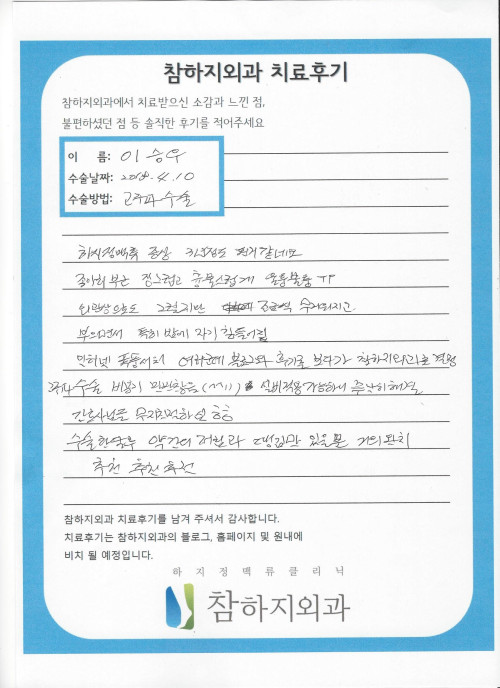 참하지외과 치료후기
참하지외과에서 치료받으신 소감과 느낀 점,
불편하셨던 점 등 솔직한 후기를 적어주세요
이 름: 이승우
수술날짜: 4.10
수술방법: 고주파수술
하지정맥류 증상 3년정도 된거같네요
종아리부근 징그럽고 흉물스럽게 울퉁불퉁
외관상으로도 그렇지만 조금씩
부으면서 특히 밤에 자기 힘들어짐
인터넷 여러군데 후기를 보다가 참하지외과로 결정
고주파수술 비용이 실비적용가능해서 해결
간호사님들 하심 ㅎㅎ
수술한당일 약간의 저림과 땡김만 있을뿐 거의완치
추천 추천 추천
참하지외과 치료후기를 남겨 주셔서 감사합니다.
치료후기는 참하지외과의 블로그, 홈페이지 및 원내에
비치 될 예정입니다.
하지정맥류클리닉
참하지외과